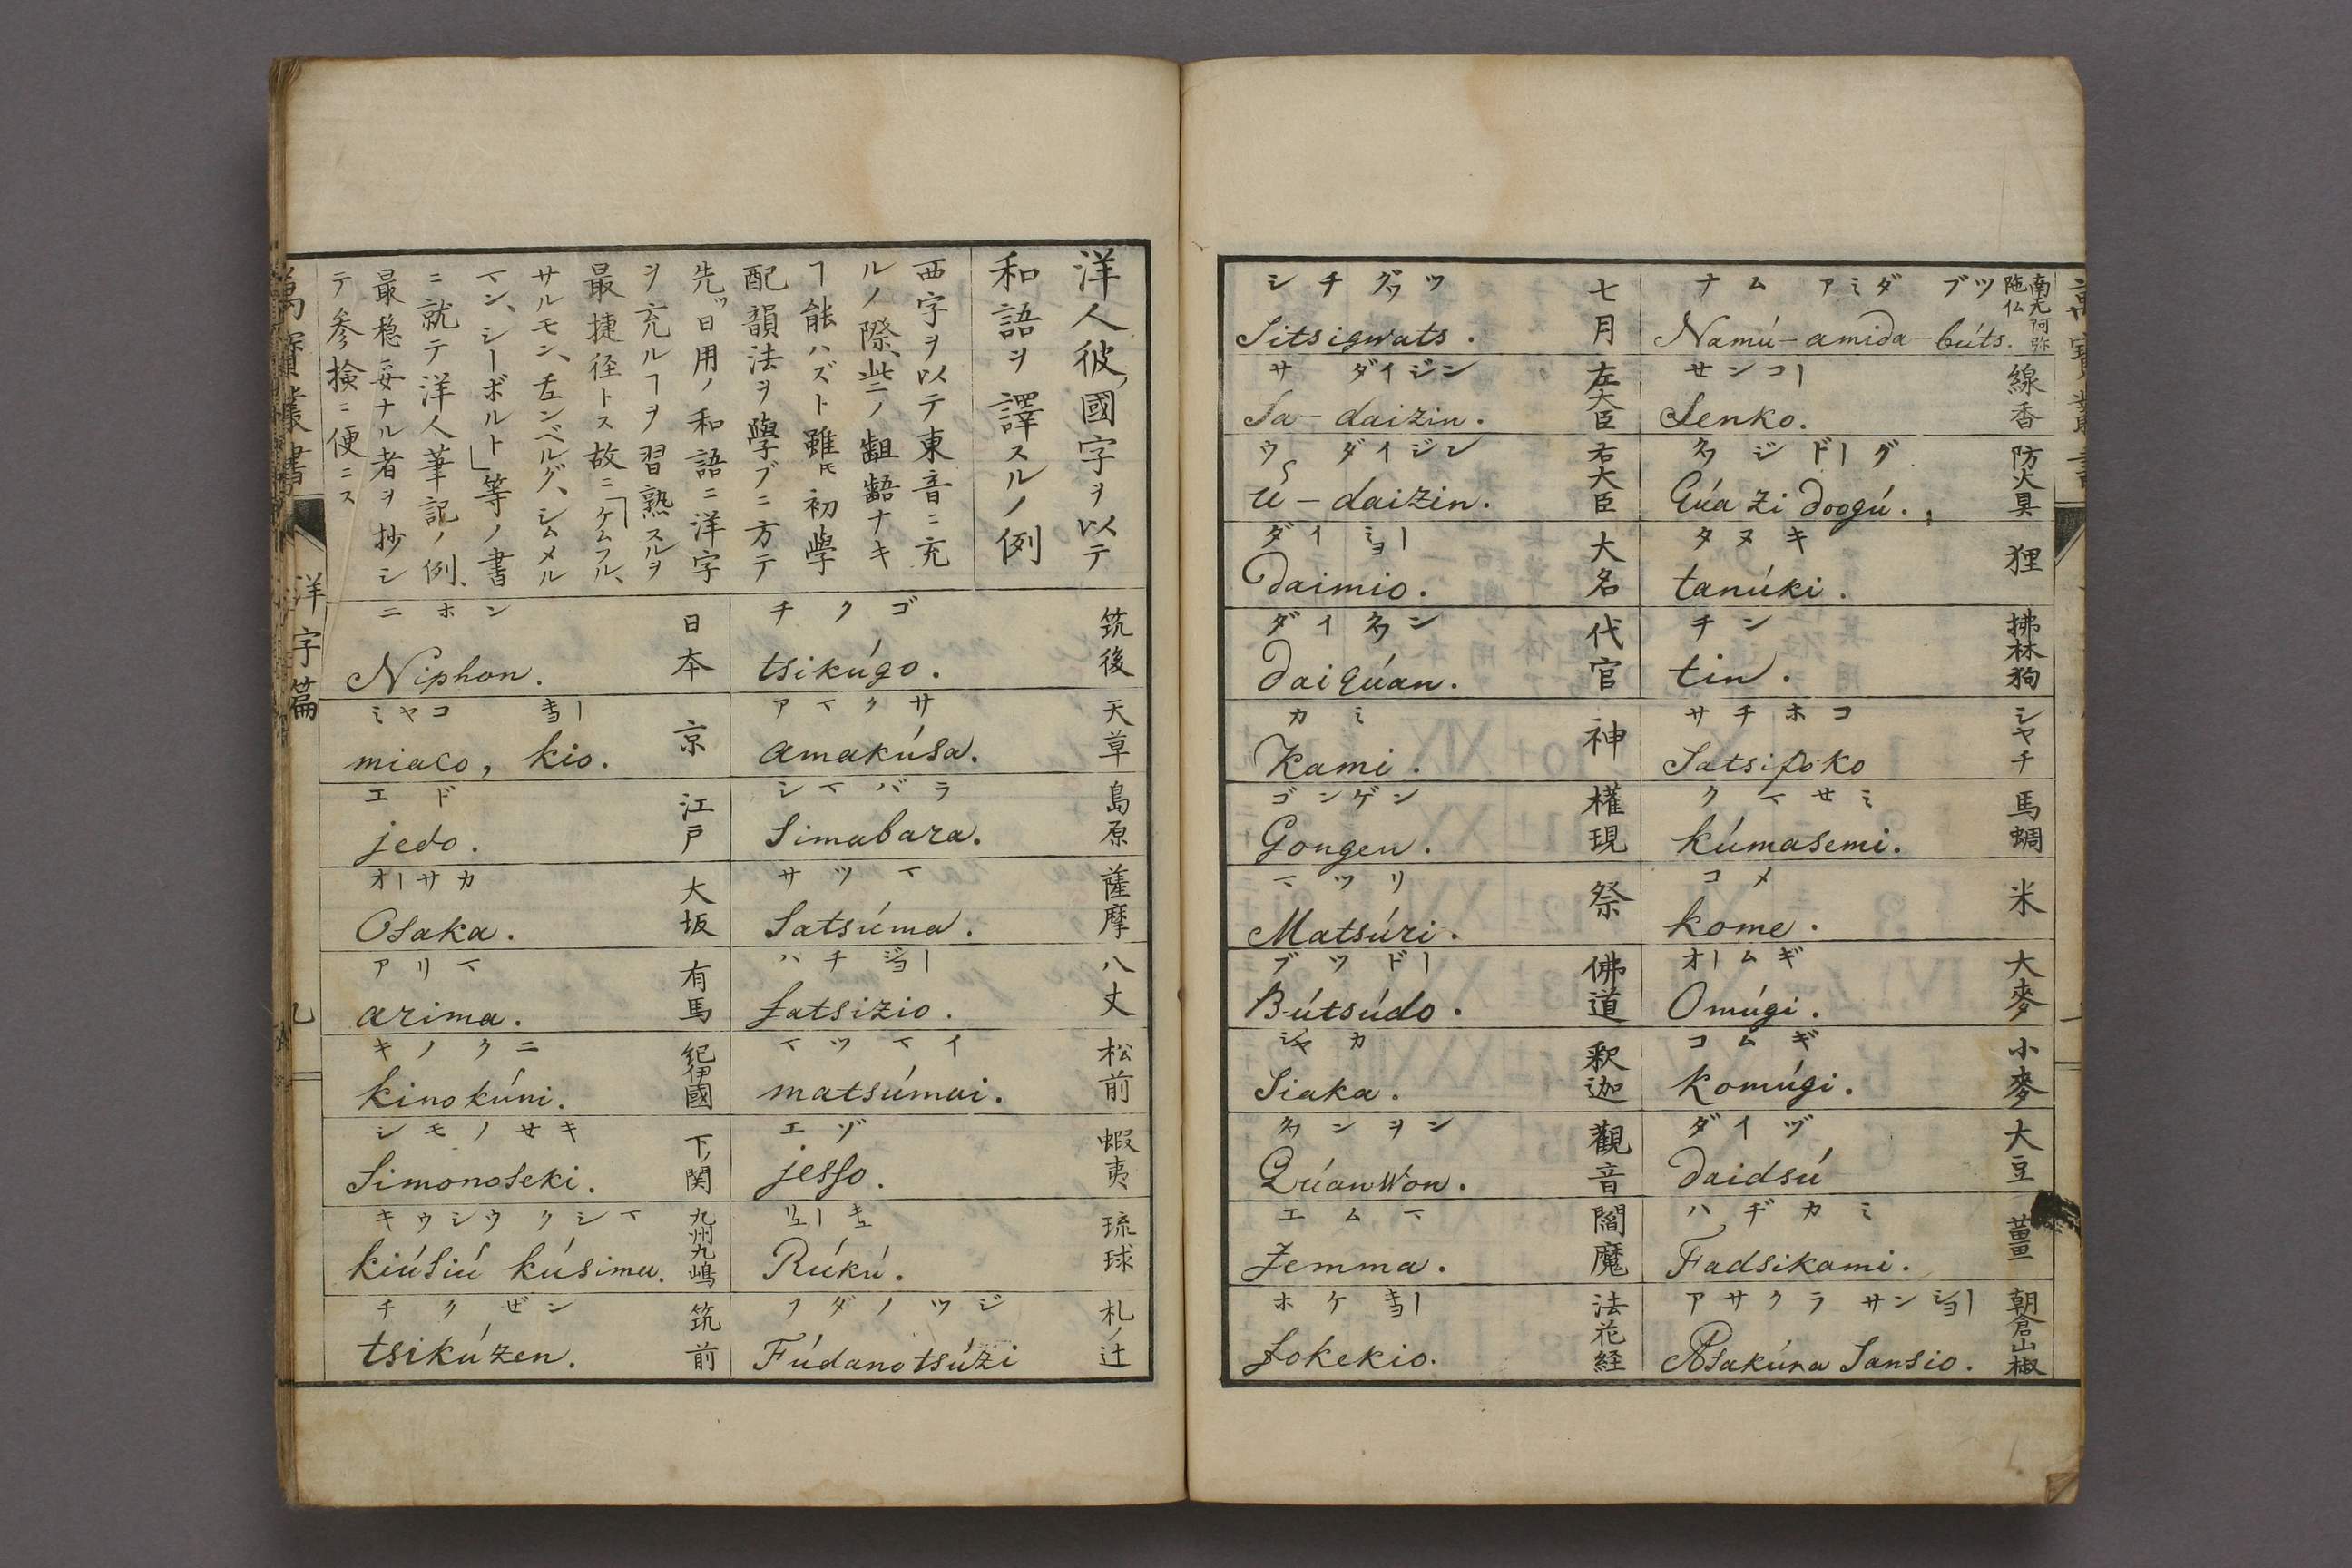 南无阿弥陁仏
ナム アミダ ブツ
Namú-amida-búts.
線香
センコー
Senko.
防火具
クヮジドーグ
Qúazi doogú.
狸
タヌキ
tanúki.
拂林狗
チン
tin.
シヤチ
サチホコ
Satsifoko
馬蜩
クマセミ
kúmasemi.
米
コメ
kome.
大麥
オームギ
Omúgi.
小麥
コムギ
Komúgi.
大豆
ダイヅ
daidsú
薑
ハヂカミ
Fadsikami.
朝倉山椒
アサクラ サンショー
Asakúra Sansio.
七月
シチグヮツ
Sitsigwats.
左大臣
サ ダイジン
Sa-daizin.
右大臣
ウ ダイジン
ú-daizin.
大名
ダイミョー
daimio.
代官
ダイクヮン
daiqúan.
神
カミ
Kami.
権現
ゴンゲン
Gongen.
祭
マツリ
Matsúri.
佛道
ブツドー
Bútsúdo.
釈迦
シャカ
Siaka.
觀音
クヮンヲン
Qúanwon.
閻魔
エムマ
Jemma.
法花経
ホケキョー
fokekio.
洋人彼ノ國字ヲ以テ
和語ヲ譯スルノ例
西字ヲ以テ東音ニ充
ルノ際、些ノ齟齬ナキ
ヿ能ハズト雖𪜈初學
配韻法ヲ學ブニ方テ
先ッ日用ノ和語ニ洋字
ヲ充ルヿヲ習熟スルヲ
最捷径トス故ニ「ケムフル、
サルモン、チュンベルグ、シムメル
マン、シーボルト」等ノ書
ニ就テ洋人筆記ノ例、
最穏妥ナル者ヲ抄シ
テ参検ニ便ニス
筑後
チクゴ
tsikúgo.
天草
アマクサ
amakúsa.
島原
シマバラ
Simabara.
薩摩
サツマ
Satsúma.
八丈
ハチジョー
fatsizio.
松前
マツマイ
matsúmai.
蝦夷
エゾ
jesso.
琉球
リューキュ
Rúkú.
札ノ辻
フダノツジ
Fúdanotsúzi
日本
ニホン
Niphon.
京
ミヤコ キョー
miaco, kio.
江戸
エド
jedo.
大坂
オーサカ
Osaka.
有馬
アリマ
arima.
紀伊國
キノクニ
kinokúni.
下ノ関
シモノセキ
Simonoseki.
九州九嶋
キウシウ クシマ
kiúsiú kúsima.
筑前
チクゼン
tsikúzen.
萬寶叢書
洋字篇